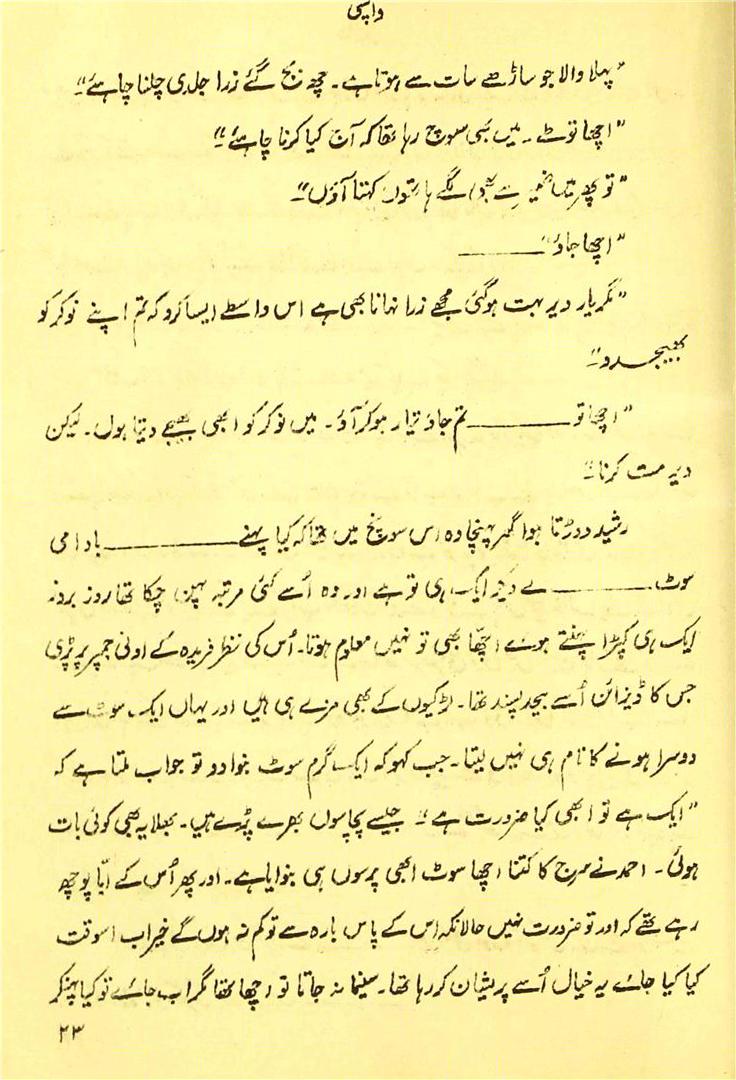 واپسی
"پہلا والا جو ساڑھے سات سے ہوتا ہے۔ چھ بج گئے ذرا جلدی چلنا چاہئے"۔
"اچھا تو ہے۔ میں بھی سوچ رہا تھا کہ آج کیا کرنا چاہئے"۔
"تو پھر میں ہاتھوں کہتا آؤں"۔
"اچھا جاؤ" ـــــــــ
"مگر یار دیر بہت ہو گئی مجھے ذرا نہانا بھی ہے اس واسطے ایسا کرو کہ تم اپنے نوکر کو
بھیجدو"۔
"اچھا تو ـــــــــ تم جاؤ تیار ہو کر آؤ۔ میں نوکر کو ابھی بھیجے دیتا ہوں۔ لیکن
دیر مت کرنا"۔
رشید دوڑتا ہوا گھر پہنچا وہ اس سوچ میں تھا کہ کیا پہنے ـــــــــ بادامی
سوٹ ـــــــــ لے دیکر ایک ہی تو ہے اور وہ اُسے کئی مرتبہ پہن چکا تھا روز بروز
ایک ہی کپڑا پہنتے ہوئے اچھّا بھی تو نہیں معلوم ہوتا۔ اُس کی نظر فریدہ کے اونی جمپر پر پڑی
جس کا ڈیزائن اُسے بیحد پسند تھا۔ لڑکیوں کے بھی مزے ہی ہیں اور یہاں ایک سوٹ سے
دوسرا ہونے کا نام ہی نہیں لیتا۔ جب کہو کہ ایک گرم سوٹ بنوا دو تو جواب ملتا ہے کہ
"ایک ہے تو ابھی کیا ضرورت ہے"۔ جیسے پچاسوں بھرے پڑے ہیں۔ بھلا یہ بھی کوئی بات
ہوئی۔ احمد نے سرج کا کتنا اچھا سوٹ ابھی پرسوں ہی بنوایا ہے۔ اور پھر اُس کے ابّا پوچھ
رہے تھے کہ اور تو ضرورت نہیں حالانکہ اِس کے پاس بارہ سے تو کم نہ ہوں گے خیر اب اسوقت
کیا کیا جائے یہ خیال اُسے پریشان کر رہا تھا۔ سینما نہ جاتا تو اچھا تھا مگر اب جائے تو کیا پہنکر
۲۳